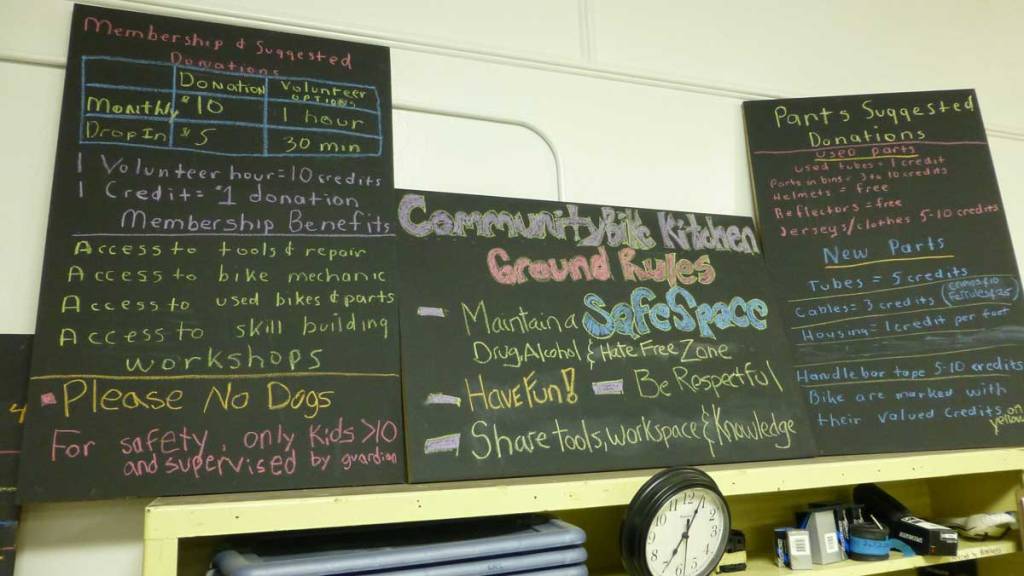 Membership & Suggested
Donations
Donation Volunteer
options
Monthly $10 1 hour
Drop In $5 30 min
1 Volunteer hour=10 credits
1 Credit= $1 donation
Membership Benefits
Access to tools & repair
Access to bike mechanic
Access to used bikes & parts
Access to skill building
workshops
Please No Dogs
For safety, only Kids >10
and supervised by guardian
Community Bike Kitchen
Ground Rules
Maintain a SafeSpace
Drug, Alcohol & Hate Free Zone
Have Fun! Be Respectful
Share tools, workspace & Knowledge
Parts Suggested
Donations
used parts
used tubes = 1 credit
Parts in bins = 3 to 10 credits
Helmets = free
Reflectors = free
Jerseys/clothes 5-10 credits
New Parts
Tubes = 5 credits
Cables = 3 credits
Housing = 1 credit per foot
Handlebar tape 5-10 credits
Bike are marked with
their valued credits on
yellow
12
1
2
3
4
5
6
7
8
9
10
11